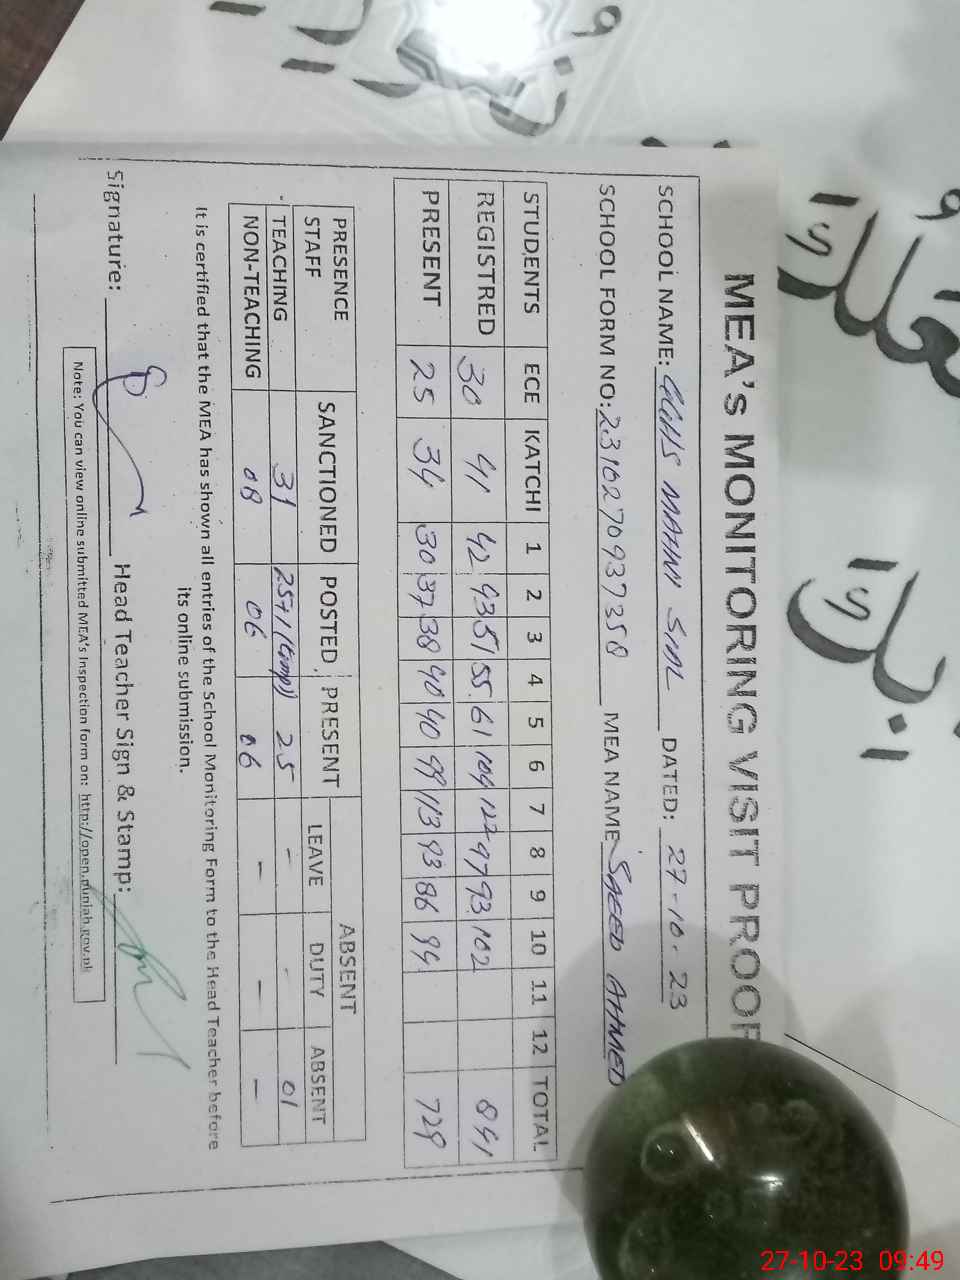 MEA'S MONITORING VISIT PROOF
SCHOOL NAME: GGHS MAHNI SIAL DATED: 27-10-23
SCHOOL FORM NO: MEA NAME SAEED AHMED
STUDENTS ECE KATCHI 1 2 3 4 5 6 7 8 9 10 11 12 TOTAL
REGISTRED 30 41 42 43 51 55 61 104 122 97 93 102 841
PRESENT 25 34 30 37 38 40 40 99 113 93 86 94 729
PRESENCE STAFF SANCTIONED POSTED PRESENT ABSENT
LEAVE DUTY ABSENT
TEACHING 31 25+1 (temp) 25 - - 01
NON-TEACHING 08 06 06 - - -
It is certified that the MEA has shown all entries of the School Monitoring Form to the Head Teacher before
its online submission.
Signature: Head Teacher Sign & Stamp:
Note: You can view online submitted MEA's Inspection form on: http://open.punjab.gov.pk
27-10-23 09:49